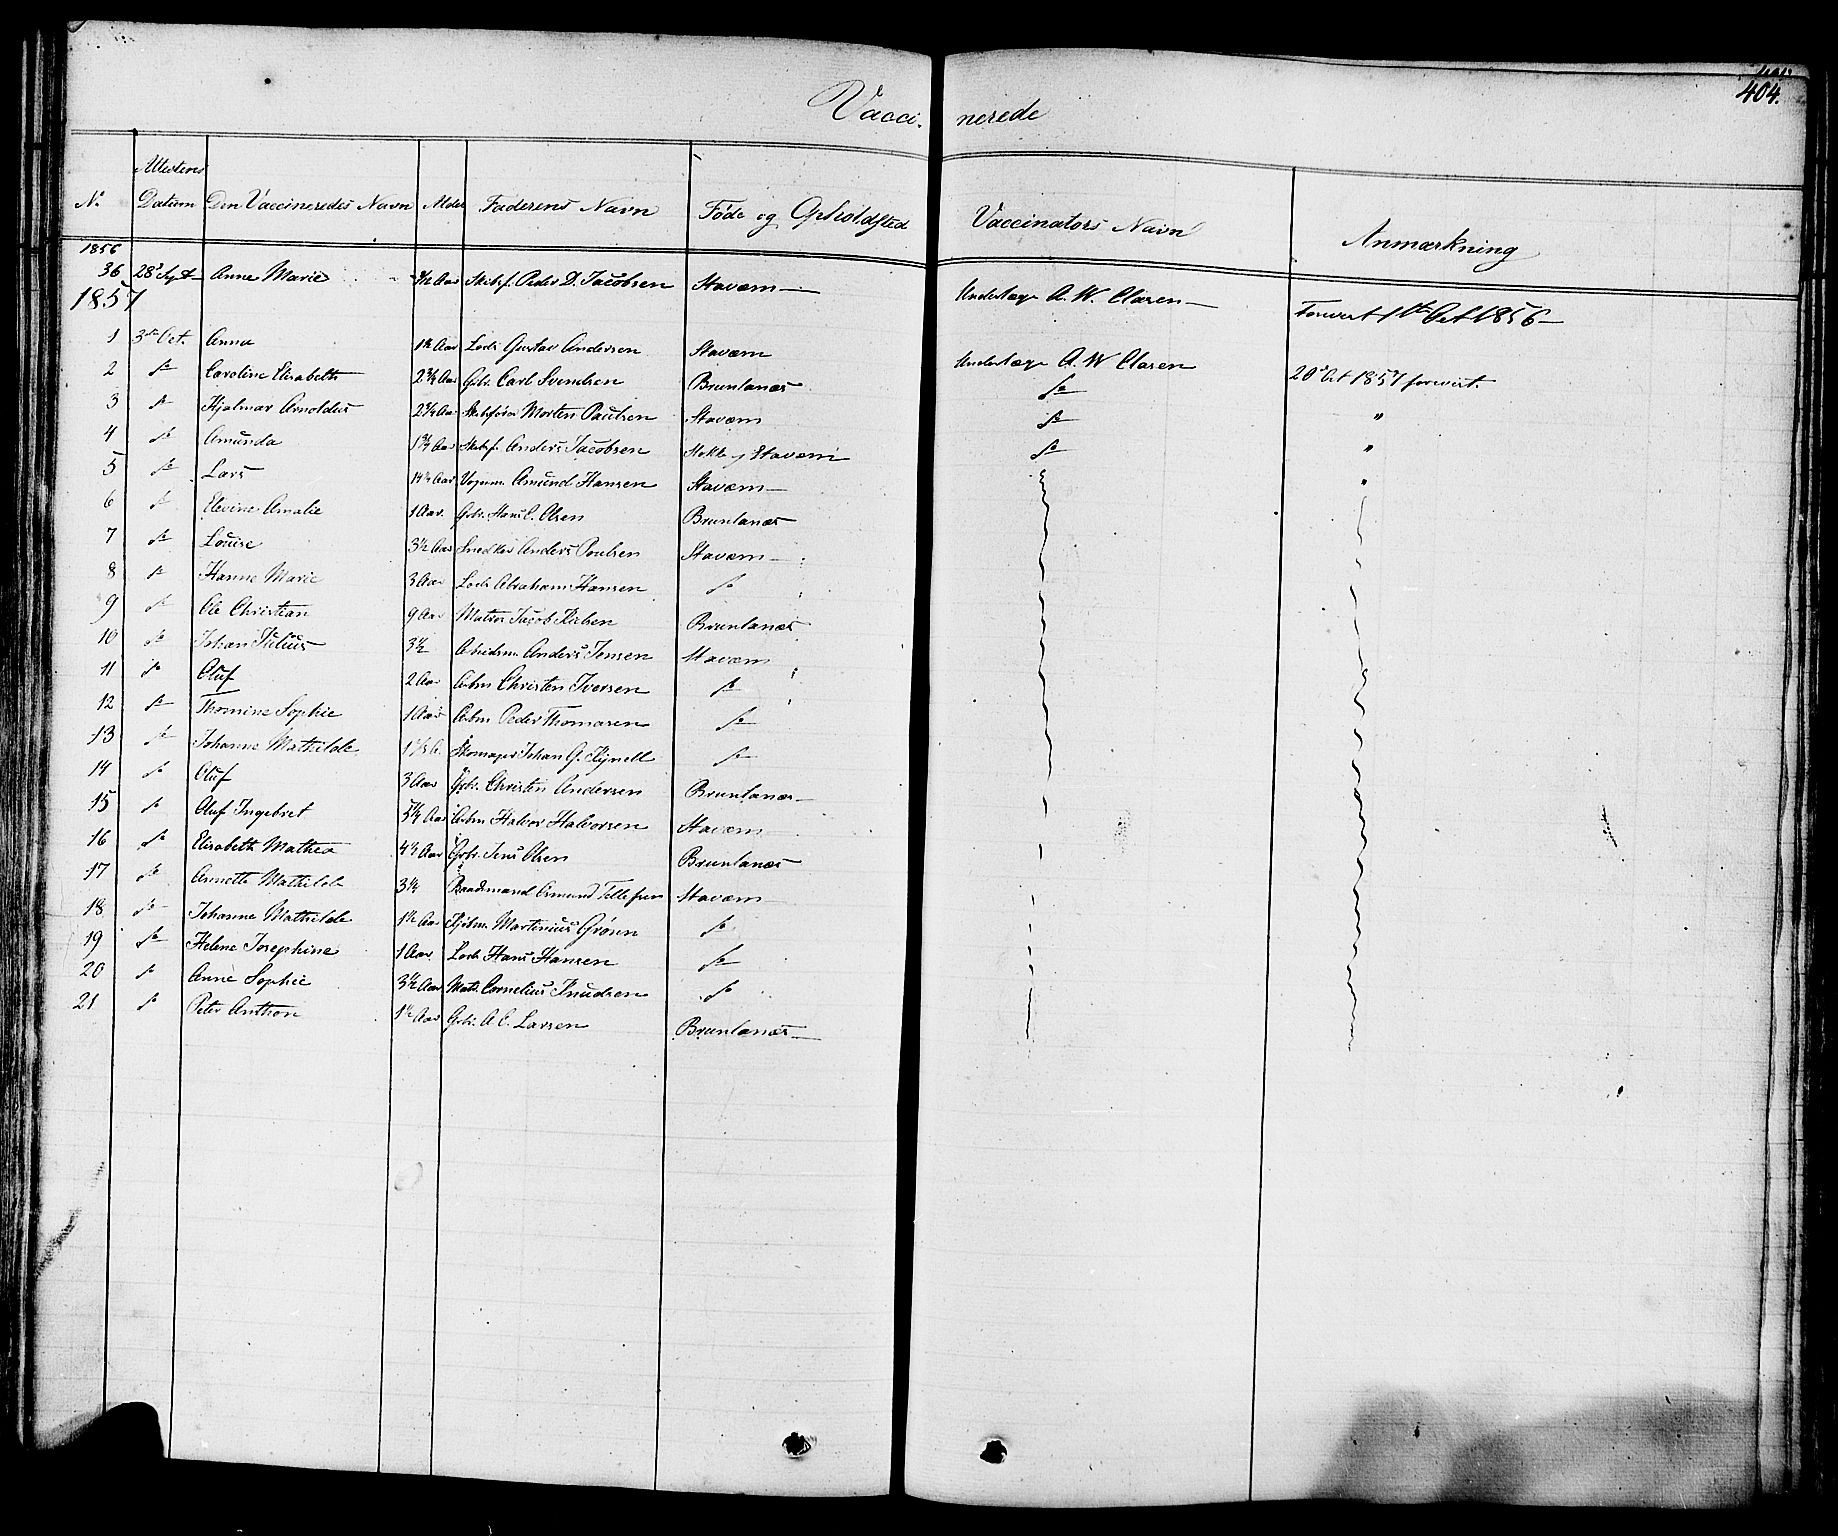 404.
Vacci- nerede
No Attestens Datum Den Vaccineredes Navn Alder Faderens Navn Føde og Opholdssted Vaccinators Navn Anmærkning
1856
36 28 Sept Anne Marie Aar Skibsf. Peder D. Jacobsen Staværn Underlæge A. W. Clasen Forevist 1ste Oct 1856
1857
1 3die Oct. Anna 1½ Aar Lods Gustav Andersen Staværn Underlæge A W Clasen 20de Oct 1857 forevist
2 do Caroline Elisabeth 2¾ Aar Grbr. Carl Svendsen Brunlanæs do
3 do Hjalmar Arnoldus Aar Skibsfører Morten Paulsen Staværn do "
4 do Amunda 1¾ Aar Skibsf. Anders Jacobsen og Staværn do "
5 do Lars Aar Amund Hansen Staværn "
6 do Elevine Amalie 1 Aar. Grbr. Hans C. Olsen Brunlanæs
7 do Louise 3½ Aar Snedker Anders Poulsen Staværn
8 do Hanne Marie 3 Aar Lods Abraham Hansen do
9 do Ole Christian 9 Aar Matros Jacob Brunlanæs
10 do Johan Julius 3½ Arbeidsm. Anders Jensen Staværn
11 do Oluf 2 Aar Arbm Christen Iversen do
12 do Thomine Sophie 1 Aar Arbm Peder Thomasen do
13 do Johanne Mathilde A. Skomager Johan G. do
14 do Oluf 3 Aar Grbr. Christen Andersen Brunlanæs
15 do Oluf Ingebret Aar Arbm Halvor Halvorsen Staværn
16 do Elisabeth Mathea 4½ Aar Grbr. Jens Olsen Brunlanæs
17 do Annette Mathilde 3½ Baadsmand Tellefsen Staværn
18 do Johanne Mathilde 1½ Aar Martinius Grønn do
19 do Helene Josephine 1 Aar Lods Hans Hansen do
20 do Anne Sophie 3½ Aar Matr. Cornelius Knudsen do
21 do Peter Anthon 1½ Aar Grbr. A. C. Larsen Brunlanæs